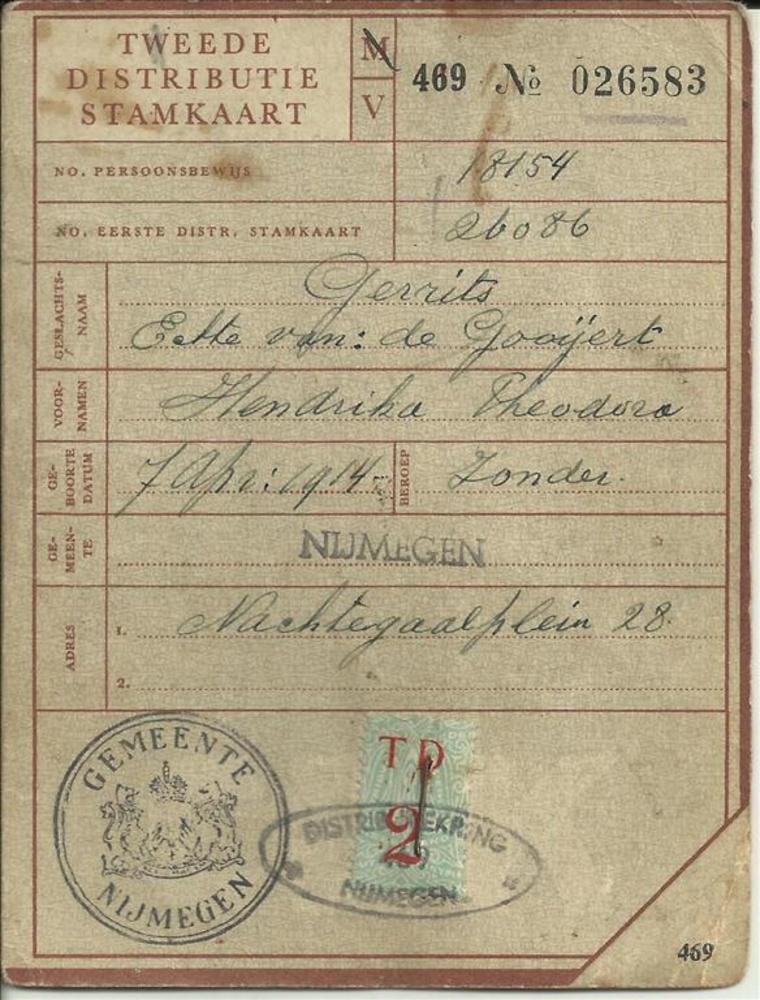 TWEEDE
DISTRIBUTIE
STAMKAART
M
V
469 No 026583
NO. PERSOONSBEWIJS
18154
NO. EERSTE DISTR. STAMKAART
26086
GESLACHTS-
NAAM
Gerrits
Echte van: de Gooijert
VOOR-
NAMEN
Hendrika Theodora
GE-
BOORTE
DATUM
7 Apr: 1914
BEROEP
Zonder.
GE-
MEEN-
TE
NIJMEGEN
ADRES
1. Nachtegaalplein 28.
2.
GEMEENTE
NIJMEGEN
TD
2
DISTRIBUTIEKRING
469
NIJMEGEN
469